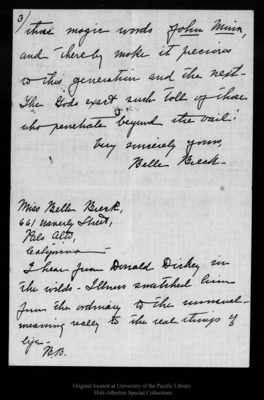 3/
those magic words John Muir,
and thereby make it precious
to this generation and the next.
The Gods exact such toll of those
who penetrate "beyond the vail."
Very sincerely yours,
Belle Breck.
Miss Belle Breck,
661 Waverly Street,
Palo Alto,
California
I hear from Donald Dickey in
the wilds - Illness snatched him
from the ordinary to the unusual -
meaning really to the real things of
life.
B.B.
Original located at University of the Pacific Library
Holt-Atherton Special Collections